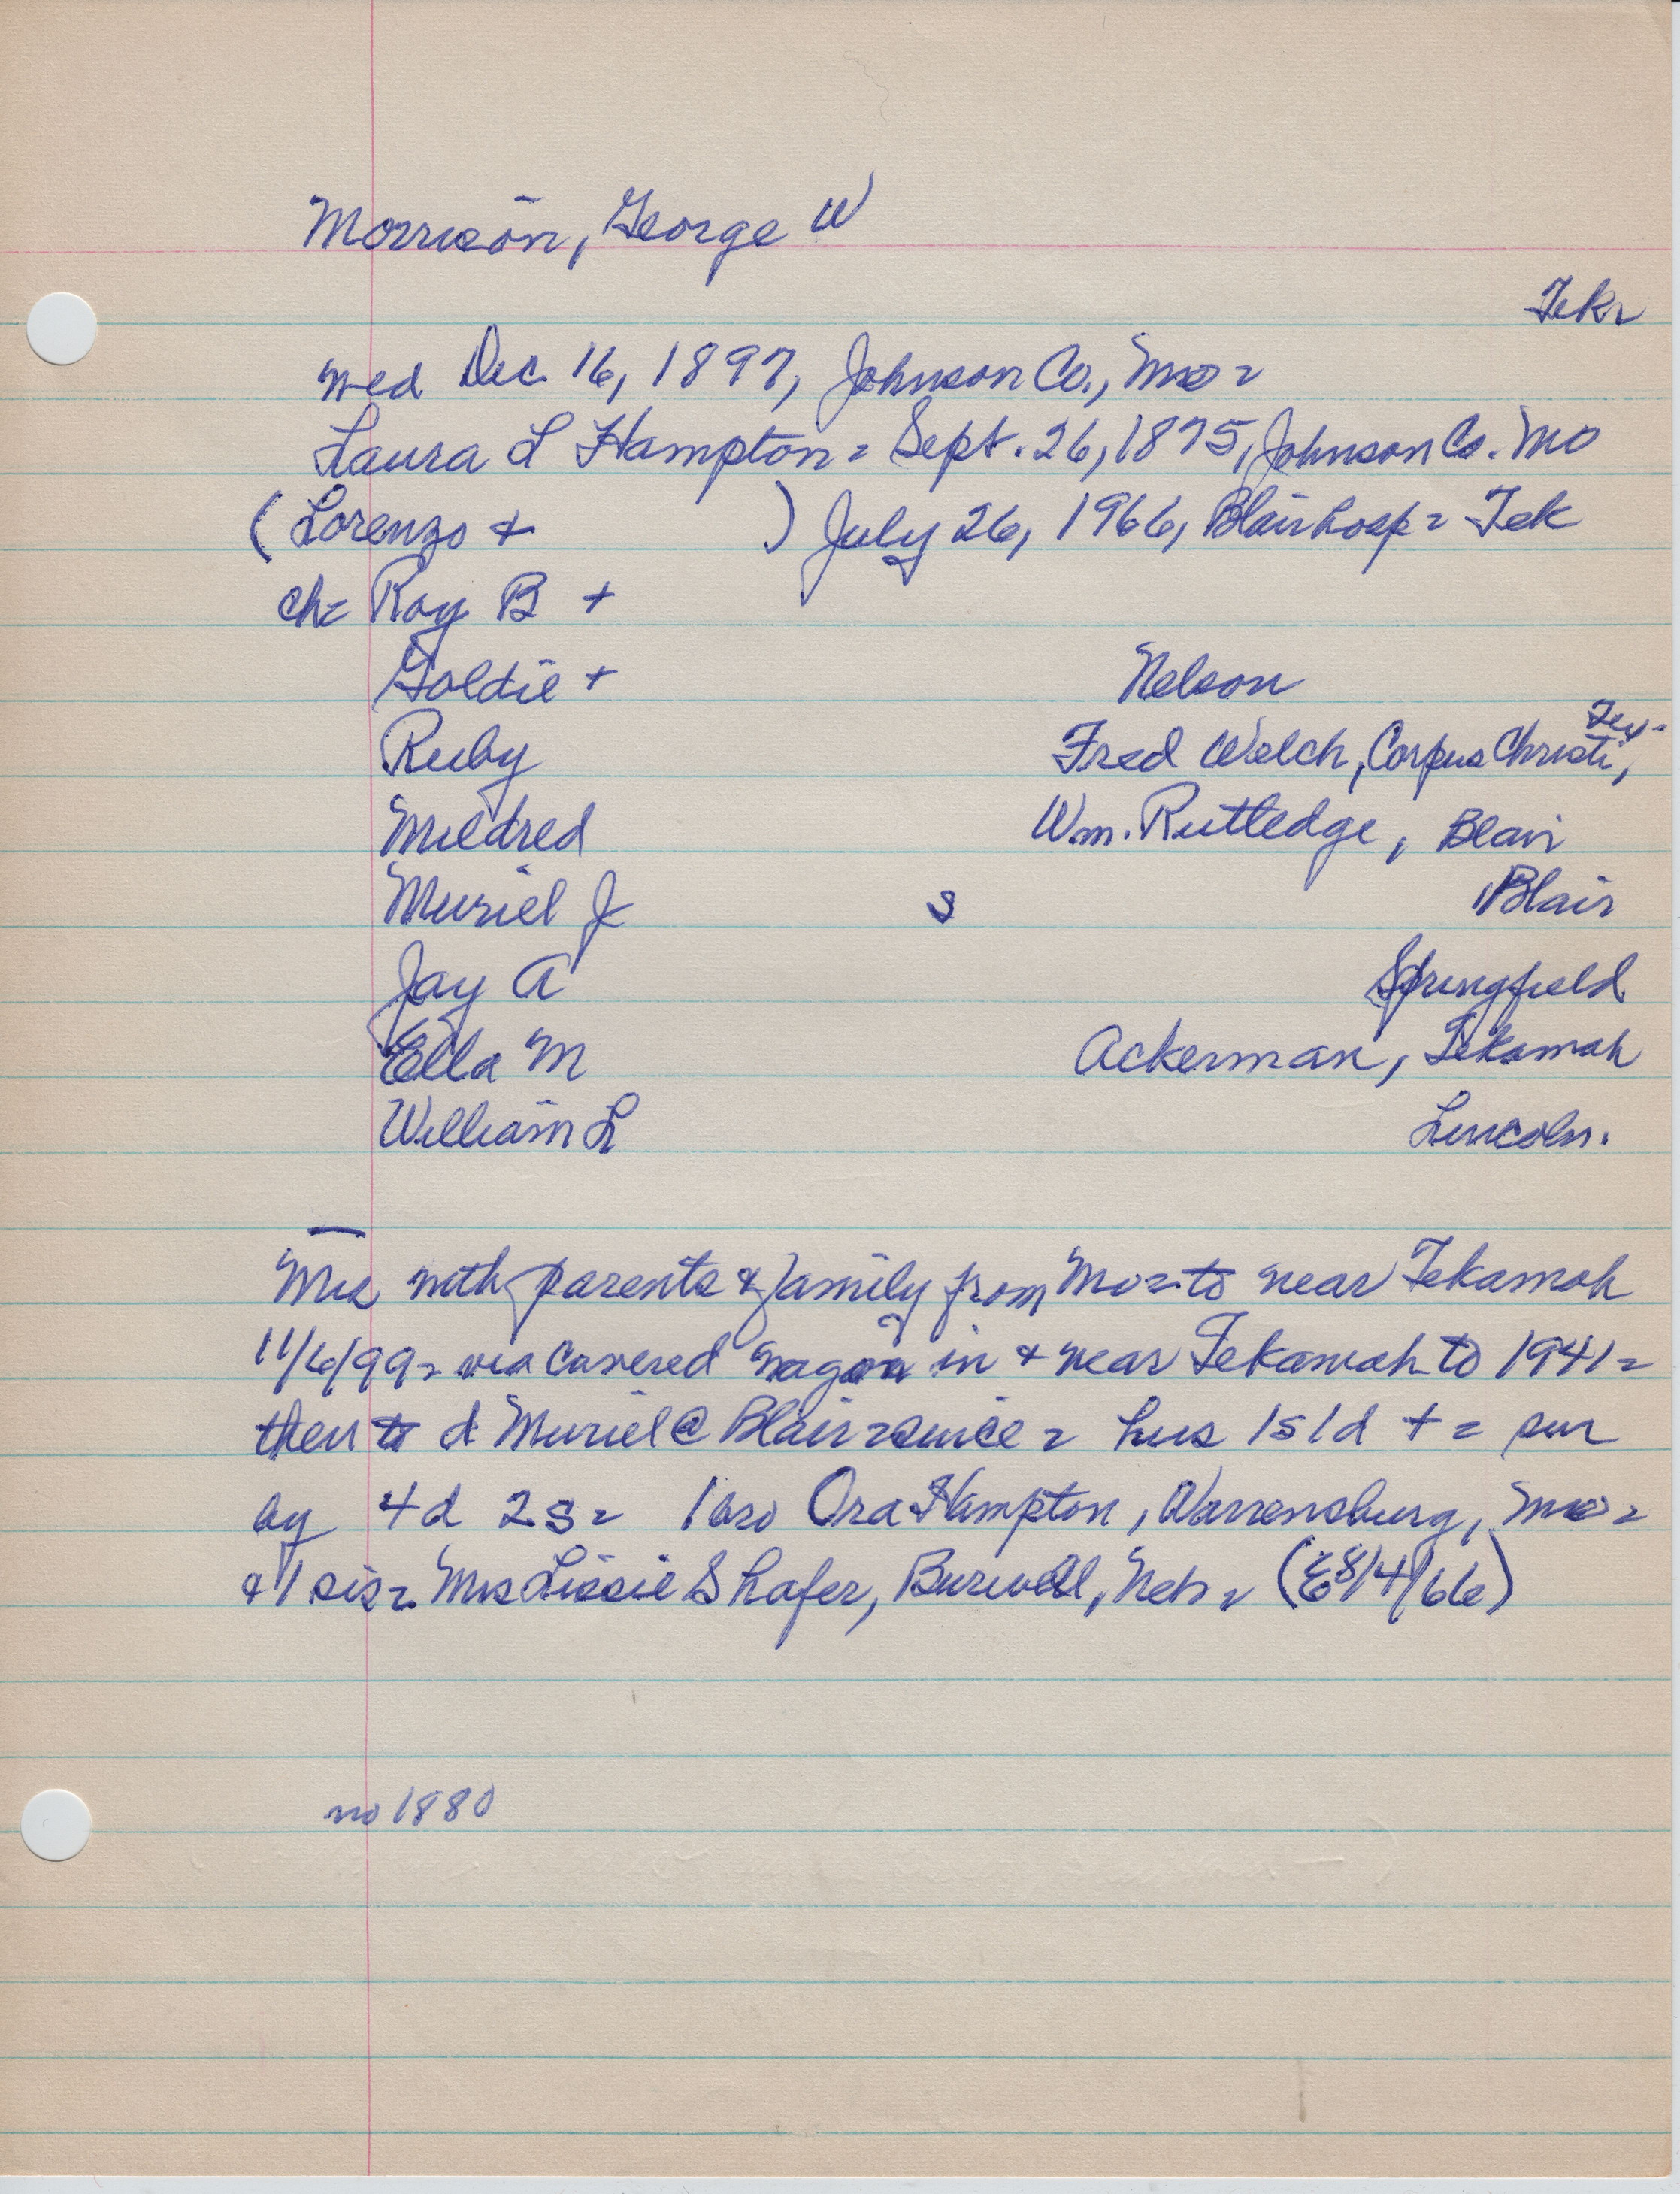 Morrison, George W
Tek=
wed Dec. 16, 1897, Johnson Co., Mo=
Laura L Hampton= Sept. 26, 1875, Johnson Co. Mo
(Lorenzo + ) July 26, 1966, Blair hosp= Tek
ch= Roy B +
Goldie + Nelson
Ruby Fred Welch, Corpus Christi, Tex-
Mildred Wm. Rutledge, Blair
Muriel J s Blair
Jay A Springfield
Ella M Ackerman, Tekamah
William L Lincoln.
Mrs with parents & family from Mo= to near Tekamah
11/6/99= via covered wagon in + near Tekamah to 1941=
then to d Muriel @ Blair= since= hus 1s 1d += sur
by 4d 2s= 1 bro Ora Hampton, Warrensburg, Mo=
& 1 sis= Mrs Lissie Shafer, Burwell, Neb= (8/4/66)
no 1880